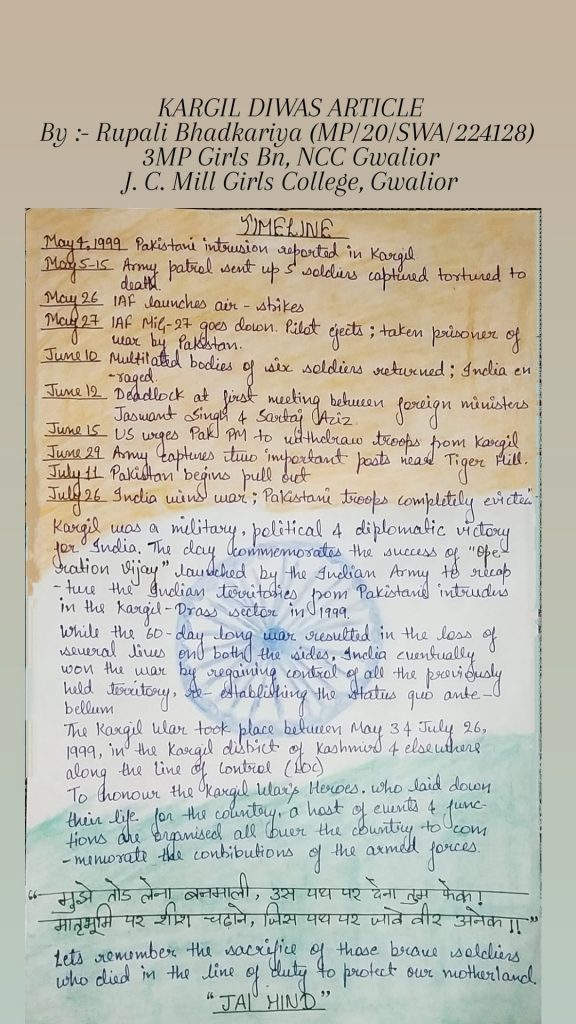 KARGIL DIWAS ARTICLE
By :- Rupali Bhadkariya (MP/20/SWA/224128)
3MP Girls Bn, NCC Gwalior
J. C. Mill Girls College, Gwalior
TIMELINE
May 4, 1999 Pakistani intrusion reported in Kargil
May 5-15 Army patrol sent up 5 soldiers captured tortured to
death.
May 26 IAF launches air-strikes
May 27 IAF MiG-27 goes down. Pilot ejects; taken prisoner of
war by Pakistan.
June 10 Multilated bodies of six soldiers returned; India en
-raged.
June 12 Deadlock at first meeting between foreign ministers
Jaswant Singh & Sartaj Aziz
June 15 US urges Pak PM to withdraw troops from Kargil
June 29 Army captures two important posts near Tiger Hill.
July 11 Pakistan begins pull out
July 26 India wins war; Pakistani troops completely evicted
Kargil was a military, political & diplomatic victory
for India. The day commemorates the success of "Ope-
ration Vijay" launched by the Indian Army to recap
-ture the Indian territories from Pakistani intruders
in the Kargil-Drass sector in 1999.
While the 60-day long war resulted in the loss of
several lives on both the sides, India eventually
won the war by regaining control of all the previously
held territory, re-establishing the status quo ante-
bellum
The Kargil War took place between May 3 & July 26,
1999, in the Kargil district of Kashmir & elsewhere
along the line of control (LOC)
To honour the Kargil War's Heroes, who laid down
their life for the country, a host of events & func-
tions are organised all over the country to com
-memorate the contibutions of the armed forces.
"मुझे तोड लेना बनमाली, उस पथ पर देना तुम फेक!
मातृभूमि पर शीश चढाने, जिस पथ पर जावे वीर अनेक!!"
Lets remember the sacrifice of those brave soldiers
who died in the line of duty to protect our motherland.
"JAI HIND"